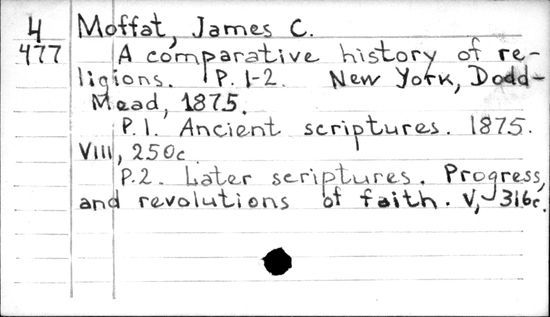 4 Moffat, James C.
477 A comparative history of re-
ligions. P. 1-2. New York, Dodd-
Mead, 1875.
P. 1. Ancient scriptures. 1875.
VIII, 250c.
P.2. Later scriptures. Progress,
and revolutions of faith. V, 316c.